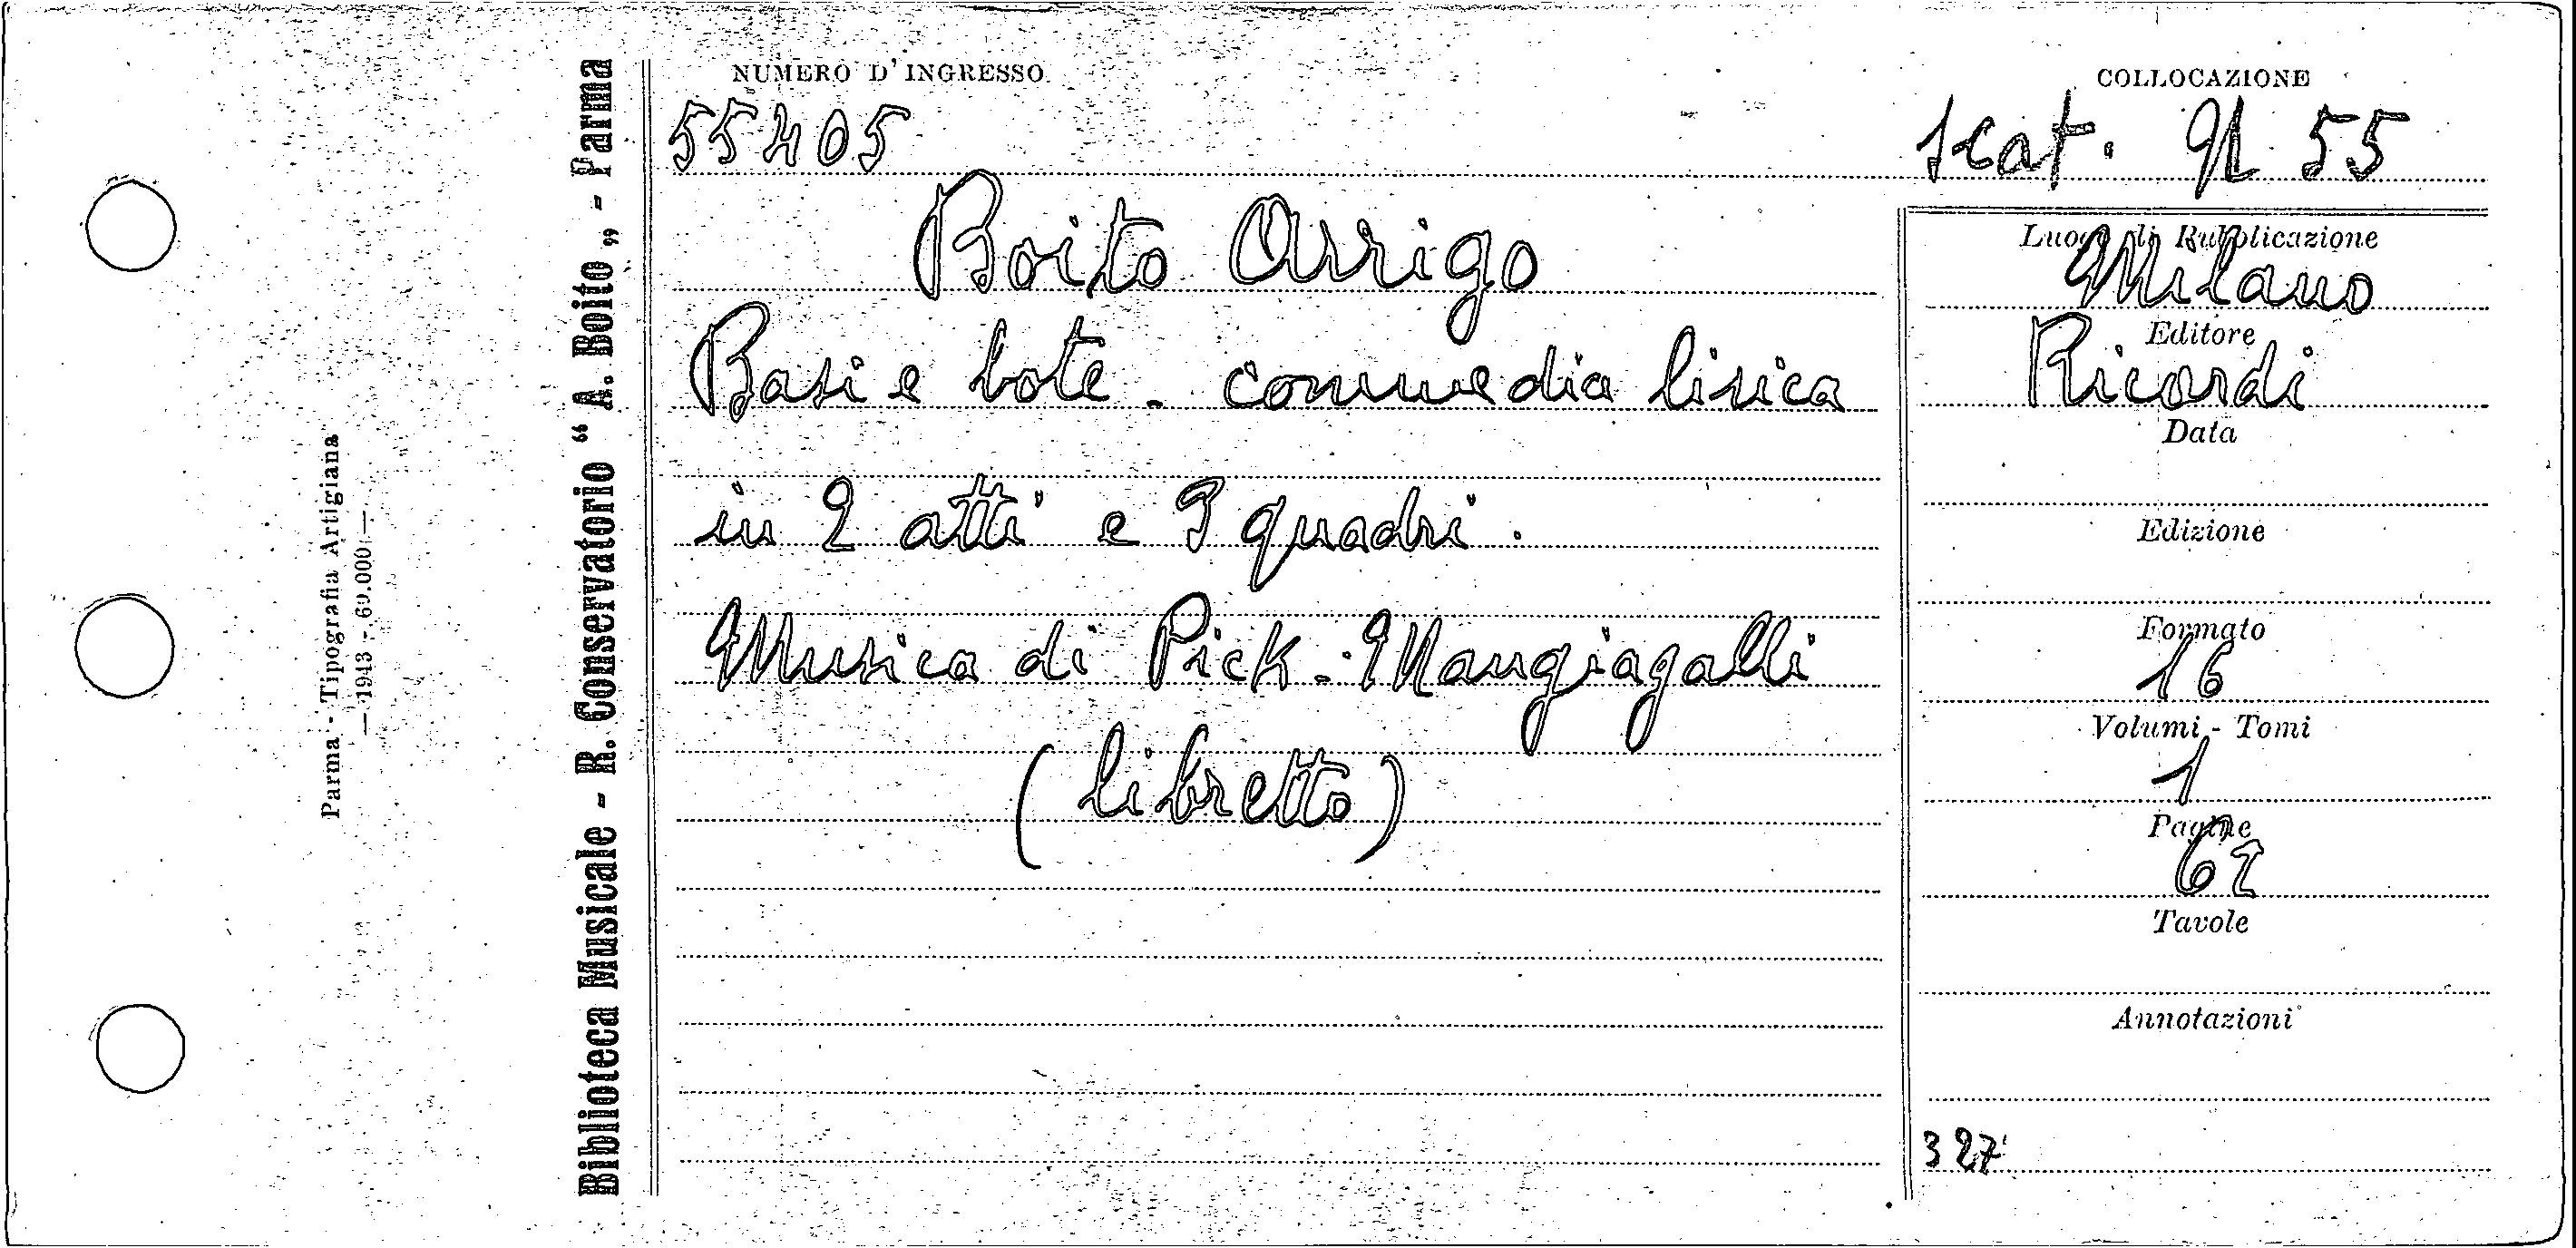 NUMERO D'INGRESSO
55405
COLLOCAZIONE
scat. 55
Boito Arrigo
Basi e bote - commedia lirica
in 2 atti e 3 quadri.
Musica di Pick-Mangiagalli
(libretto)
Luogo di Pubblicazione
Milano
Editore
Ricordi
Data
Edizione
Formato
16
Volumi - Tomi
1
Pagine
62
Tavole
Annotazioni
327
Biblioteca Musicale - R. Conservatorio “ A. Boito „ - Parma
Parma - Tipografia Artigiana
— 1943 - 60.000 —